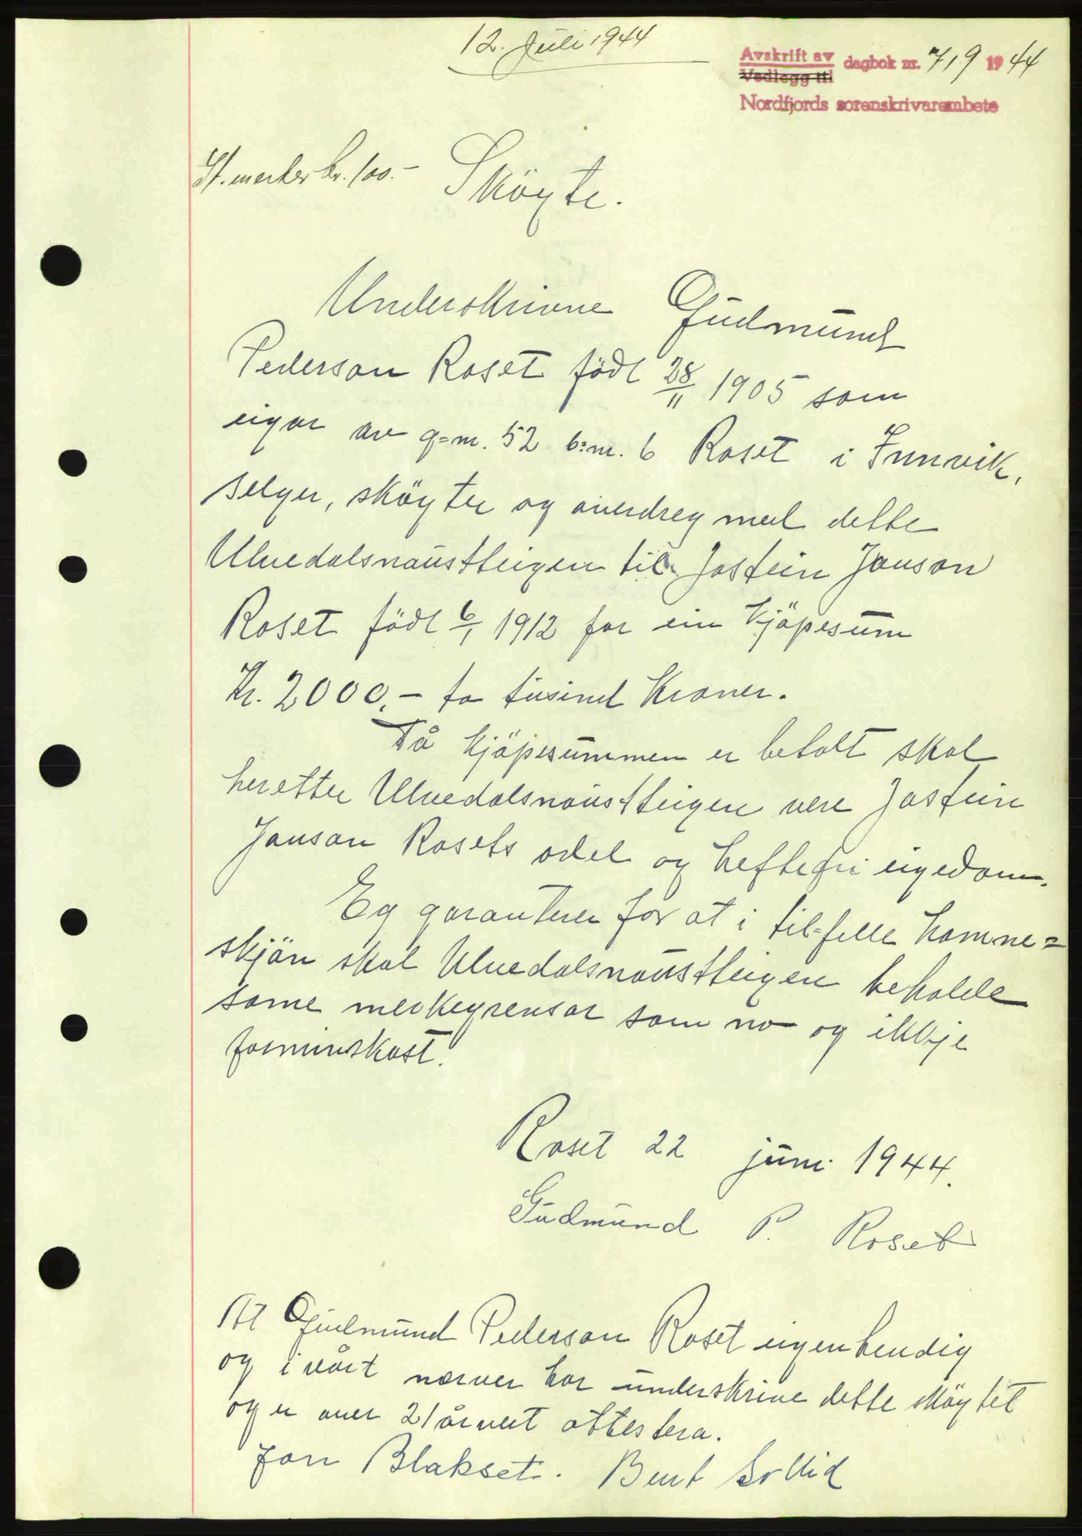 12. Juli 1944
Avskrift av
Vedlegg til
dagbok nr. 719 1944
Nordfjords sorenskrivarembete
St.merker kr. 100.-
Sköyte.
Underskrivne Gudmund
Pederson Roset född 28/11 1905 som
eigar av g=nr. 52 b:nr. 6 Roset i Innvik,
selger, sköyter og overdreg med dette
Ulvedalsnaustteigen til Jostein Jonson
Roset född 6/1 1912 for ein kjöpesum
Kr. 2000,- to tusind Kroner.
Då kjöpesummen er betalt skal
heretter Ulvedalsnaustteigen vere Jostein
Jonson Rosets odel og heftefri eigedom.
Eg garanterer for at i til-felle hamne=
skjön skal Ulvedalsnaustteigen beholde
same merkegrensar som no og ikkje
forminskast.
Roset 22 juni 1944.
Gudmund P. Roset
At Gudmund Pederson Roset eigenhendig
og i vårt nærver har underskrive dette sköytet
og er over 21 år vert attestera.
Jon Blakset. Bent Sollid